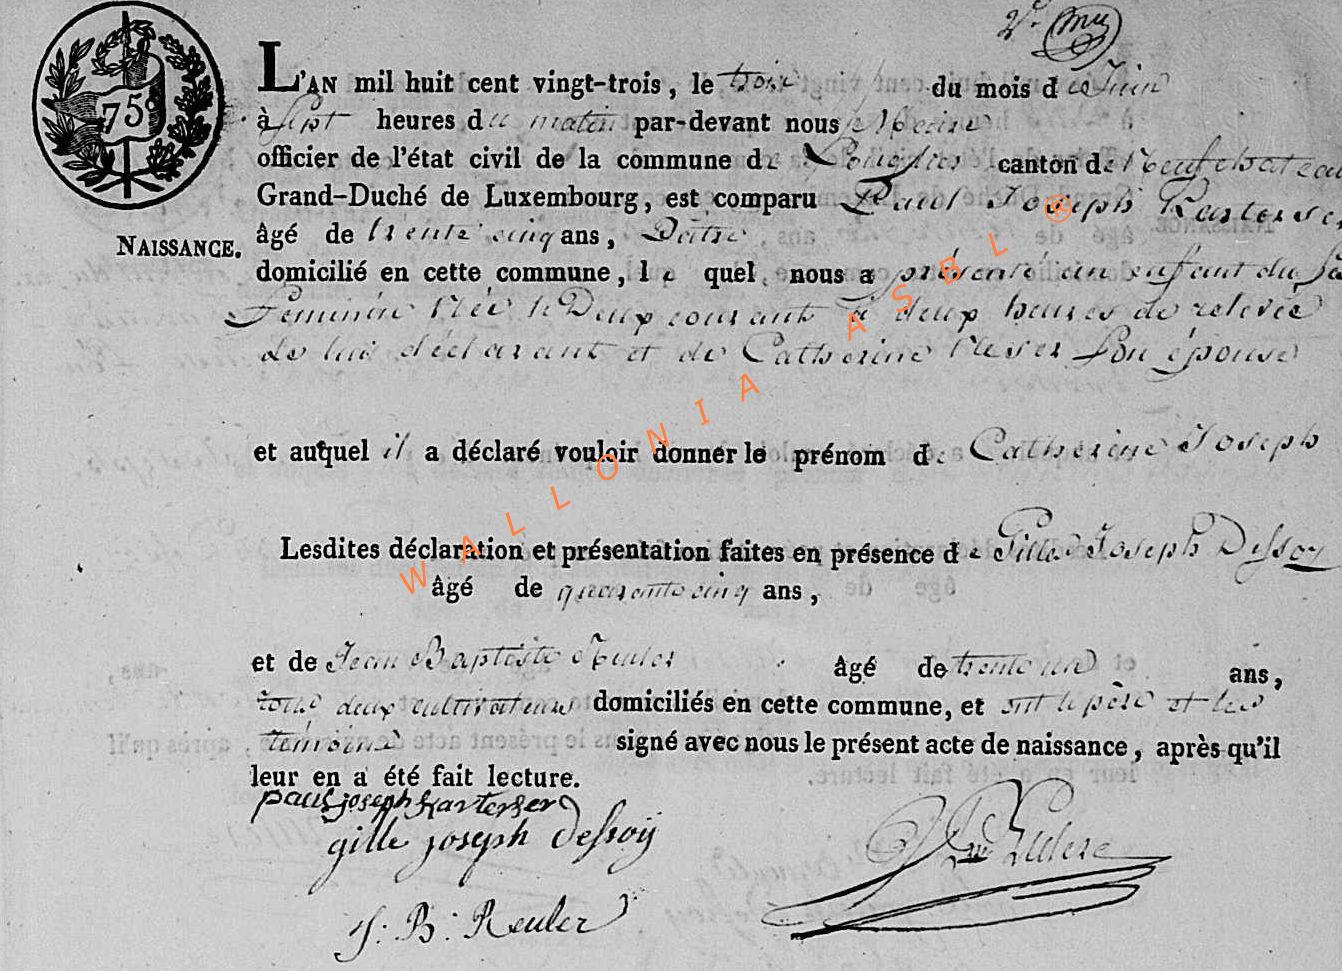 2e.
75c
L'AN mil huit cent vingt-trois, le trois du mois de Juin
à sept heures du matin par-devant nous Maire
officier de l'état civil de la commune de Longlier canton de Neufchateau
Grand-Duché de Luxembourg, est comparu Paul Joseph
NAISSANCE.
âgé de trente cinq ans,
domicilié en cette commune, le quel nous a présenté un enfant du
Feminin Née le Deux courant à deux heures de relevée
de lui déclarant et de Catherine son épouse
et auquel il a déclaré vouloir donner le prénom de Catherine Joseph
Lesdites déclaration et présentation faites en présence de Gille Joseph Dessoy
âgé de quarante cinq ans,
et de Jean Baptiste Reuler âgé de trente un ans,
tous deux cultivateurs domiciliés en cette commune, et ont le père et les
temoins signé avec nous le présent acte de naissance, après qu'il
leur en a été fait lecture.
paul joseph
gille joseph dessoy
J: B: Reuler
WALLONIA ASBL ®